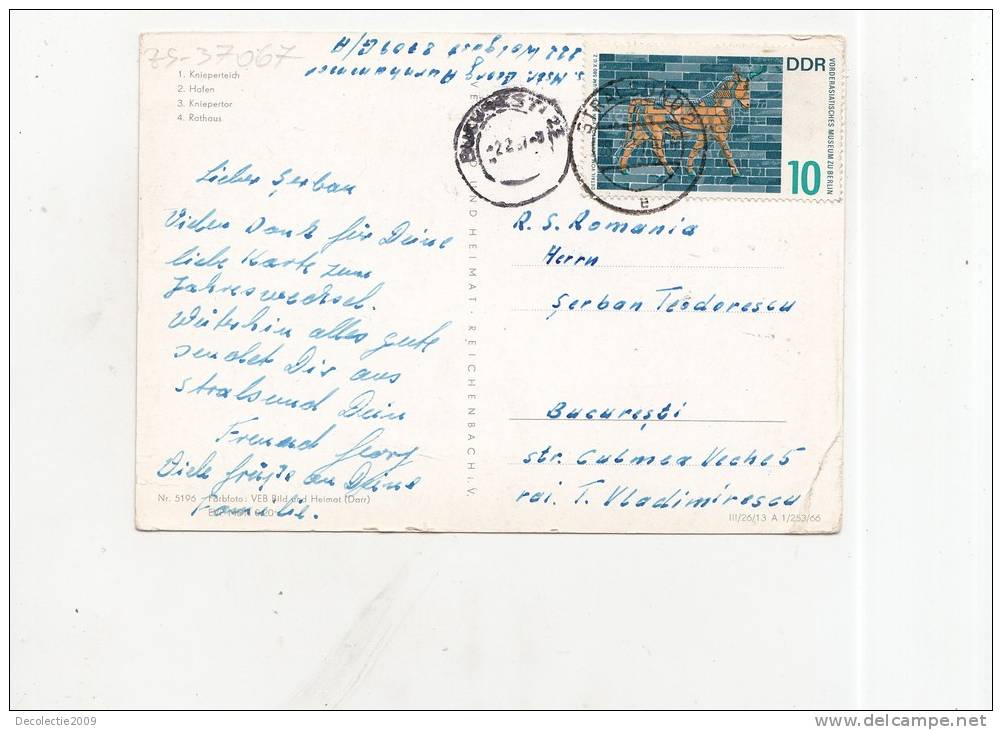 ZS-37067
1. Knieperteich
2. Hafen
3. Kniepertor
4. Rathaus
Lieber Şerban
Vielen Dank für Deine
liebe Karte zum
Jahreswechsel.
Weiterhin alles gute
sendet Dir aus
Stralsund Dein
Freund Georg
Viele Grüße an Deine
Familie.
Nr. 5196 Farbfoto: VEB Bild und Heimat (Darr)
UND HEIMAT · REICHENBACH i. V.
Georg
BUCUREŞTI 22
DDR
VORDERASIATISCHES MUSEUM ZU BERLIN
10
R. S. Romania
Herrn
Şerban Teodorescu
Bucureşti
str. Culmea Veche 5
rai. T. Vladimirescu
III/26/13 A 1/253/66
Decolectie2009
www.delcampe.net